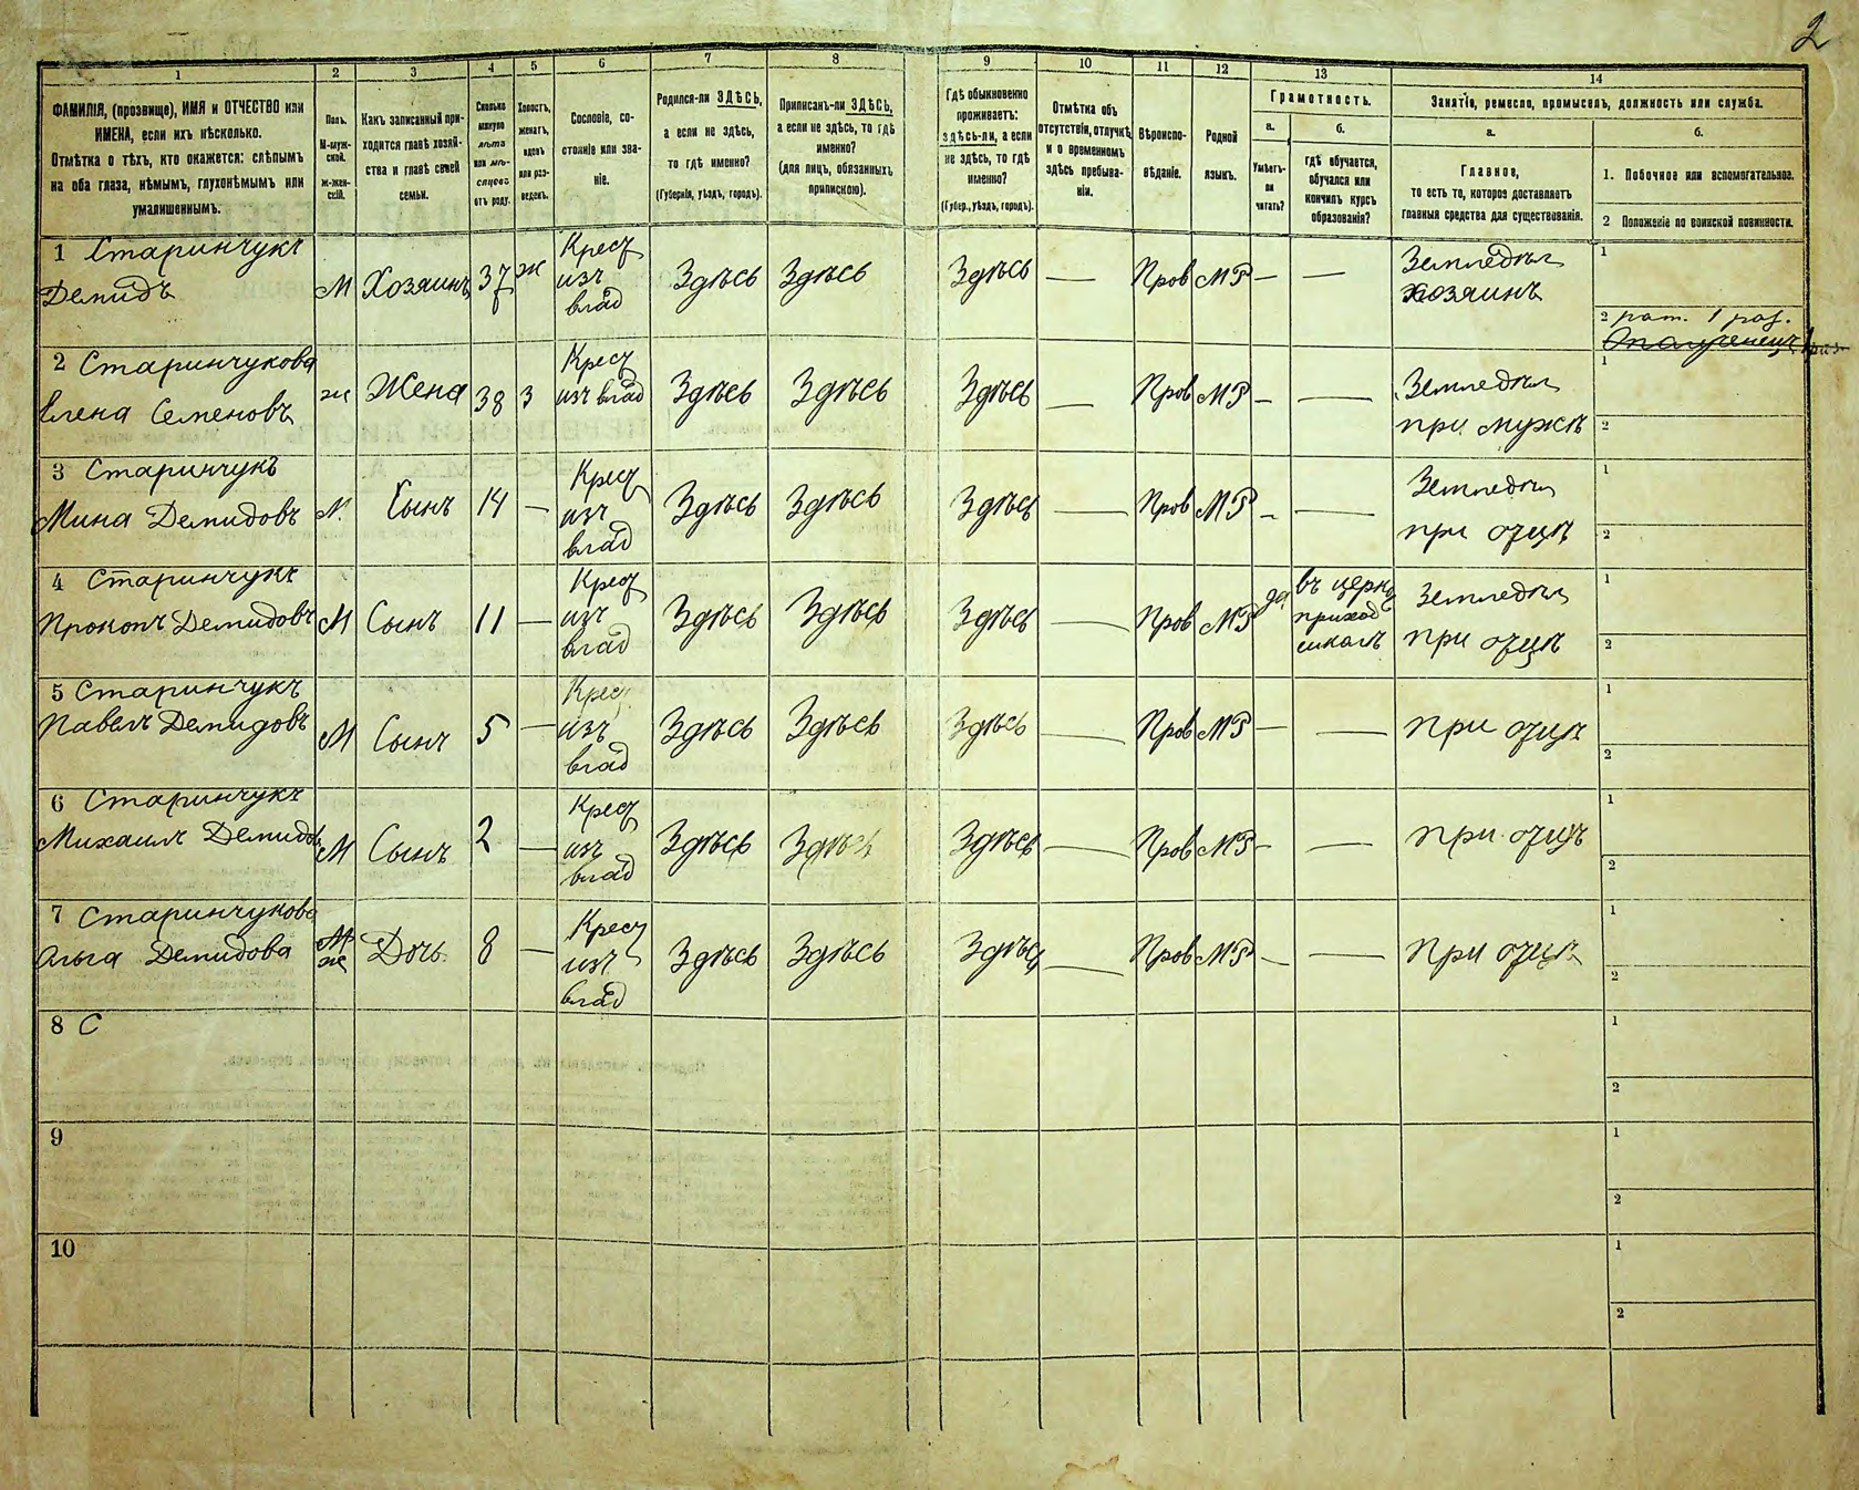 2
1 2 3 4 5 6 7 8 9 10 11 12 13 14
ФАМИЛІЯ, (прозвище), ИМЯ и ОТЧЕСТВО или
ИМЕНА, если ихъ нѣсколько.
Отмѣтка о тѣхъ, кто окажется: слѣпымъ
на оба глаза, нѣмымъ, глухонѣмымъ или
умалишеннымъ.
Полъ.
М-муж-
ской.
Ж-жен-
скій.
Какъ записанный при-
ходится главѣ хозяй-
ства и главѣ своей
семьи.
Сколько
минуло
лѣтъ
или мѣ-
сяцевъ
отъ роду.
Холостъ,
женатъ,
вдовъ
или раз-
веденъ.
Сословіе, со-
стояніе или зва-
ніе.
Родился-ли ЗДѢСЬ,
а если не здѣсь,
то гдѣ именно?
(Губернія, уѣздъ, городъ).
Приписанъ-ли ЗДѢСЬ,
а если не здѣсь, то гдѣ
именно?
(для лицъ, обязанныхъ
припискою).
Гдѣ обыкновенно
проживаетъ:
здѣсь-ли, а если
не здѣсь, то гдѣ
именно?
(Губер., уѣздъ, городъ).
Отмѣтка объ
отсутствіи, отлучкѣ
и о временномъ
здѣсь пребыва-
ніи.
Вѣроиспо-
вѣданіе.
Родной
языкъ.
Грамотность.
а.
Умѣетъ-
ли
читать?
б.
гдѣ обучается,
обучался или
кончилъ курсъ
образованія?
Занятіе, ремесло, промыселъ, должность или служба.
а.
Главное,
то есть то, которое доставляетъ
главныя средства для существованія.
б.
1. Побочное или вспомогательное.
2 Положеніе по воинской повинности.
1 Старинчукъ
Демидъ
М Хозяинъ 37 ж
Крест
изъ
влад
Здѣсь Здѣсь Здѣсь — Пров МР — —
Земледѣл
хозяинъ
1
2 рат. 1 раз.
Ополченецъ
2 Старинчукова
Елена Семеновъ
ж Жена 38 З
Крест
изъ влад
Здѣсь Здѣсь Здѣсь — Пров МР — —
Земледѣл
при мужѣ
1
2
3 Старинчукъ
Мина Демидовъ
М. Сынъ 14 —
Крест
изъ
влад
Здѣсь Здѣсь Здѣсь — Пров МР — —
Земледѣл
при отцѣ
1
2
4 Старинчукъ
Прокопъ Демидовъ
М Сынъ 11 —
Крест
изъ
влад
Здѣсь Здѣсь Здѣсь — Пров МР да
въ церк
приход
школѣ
Земледѣл
при отцѣ
1
2
5 Старинчукъ
Павелъ Демидовъ
М Сынъ 5 —
Крест
изъ
влад
Здѣсь Здѣсь Здѣсь — Пров МР — —
при отцѣ
1
2
6 Старинчукъ
Михаилъ Демидовъ
М Сынъ 2 —
Крест
изъ
влад
Здѣсь Здѣсь Здѣсь — Пров МР — —
при отцѣ
1
2
7 Старинчукова
Ольга Демидова
М
ж
Дочь. 8 —
Крест
изъ
влад
Здѣсь Здѣсь Здѣсь — Пров МР — —
при отцѣ
1
2
8 С
1
2
9
1
2
10
1
2